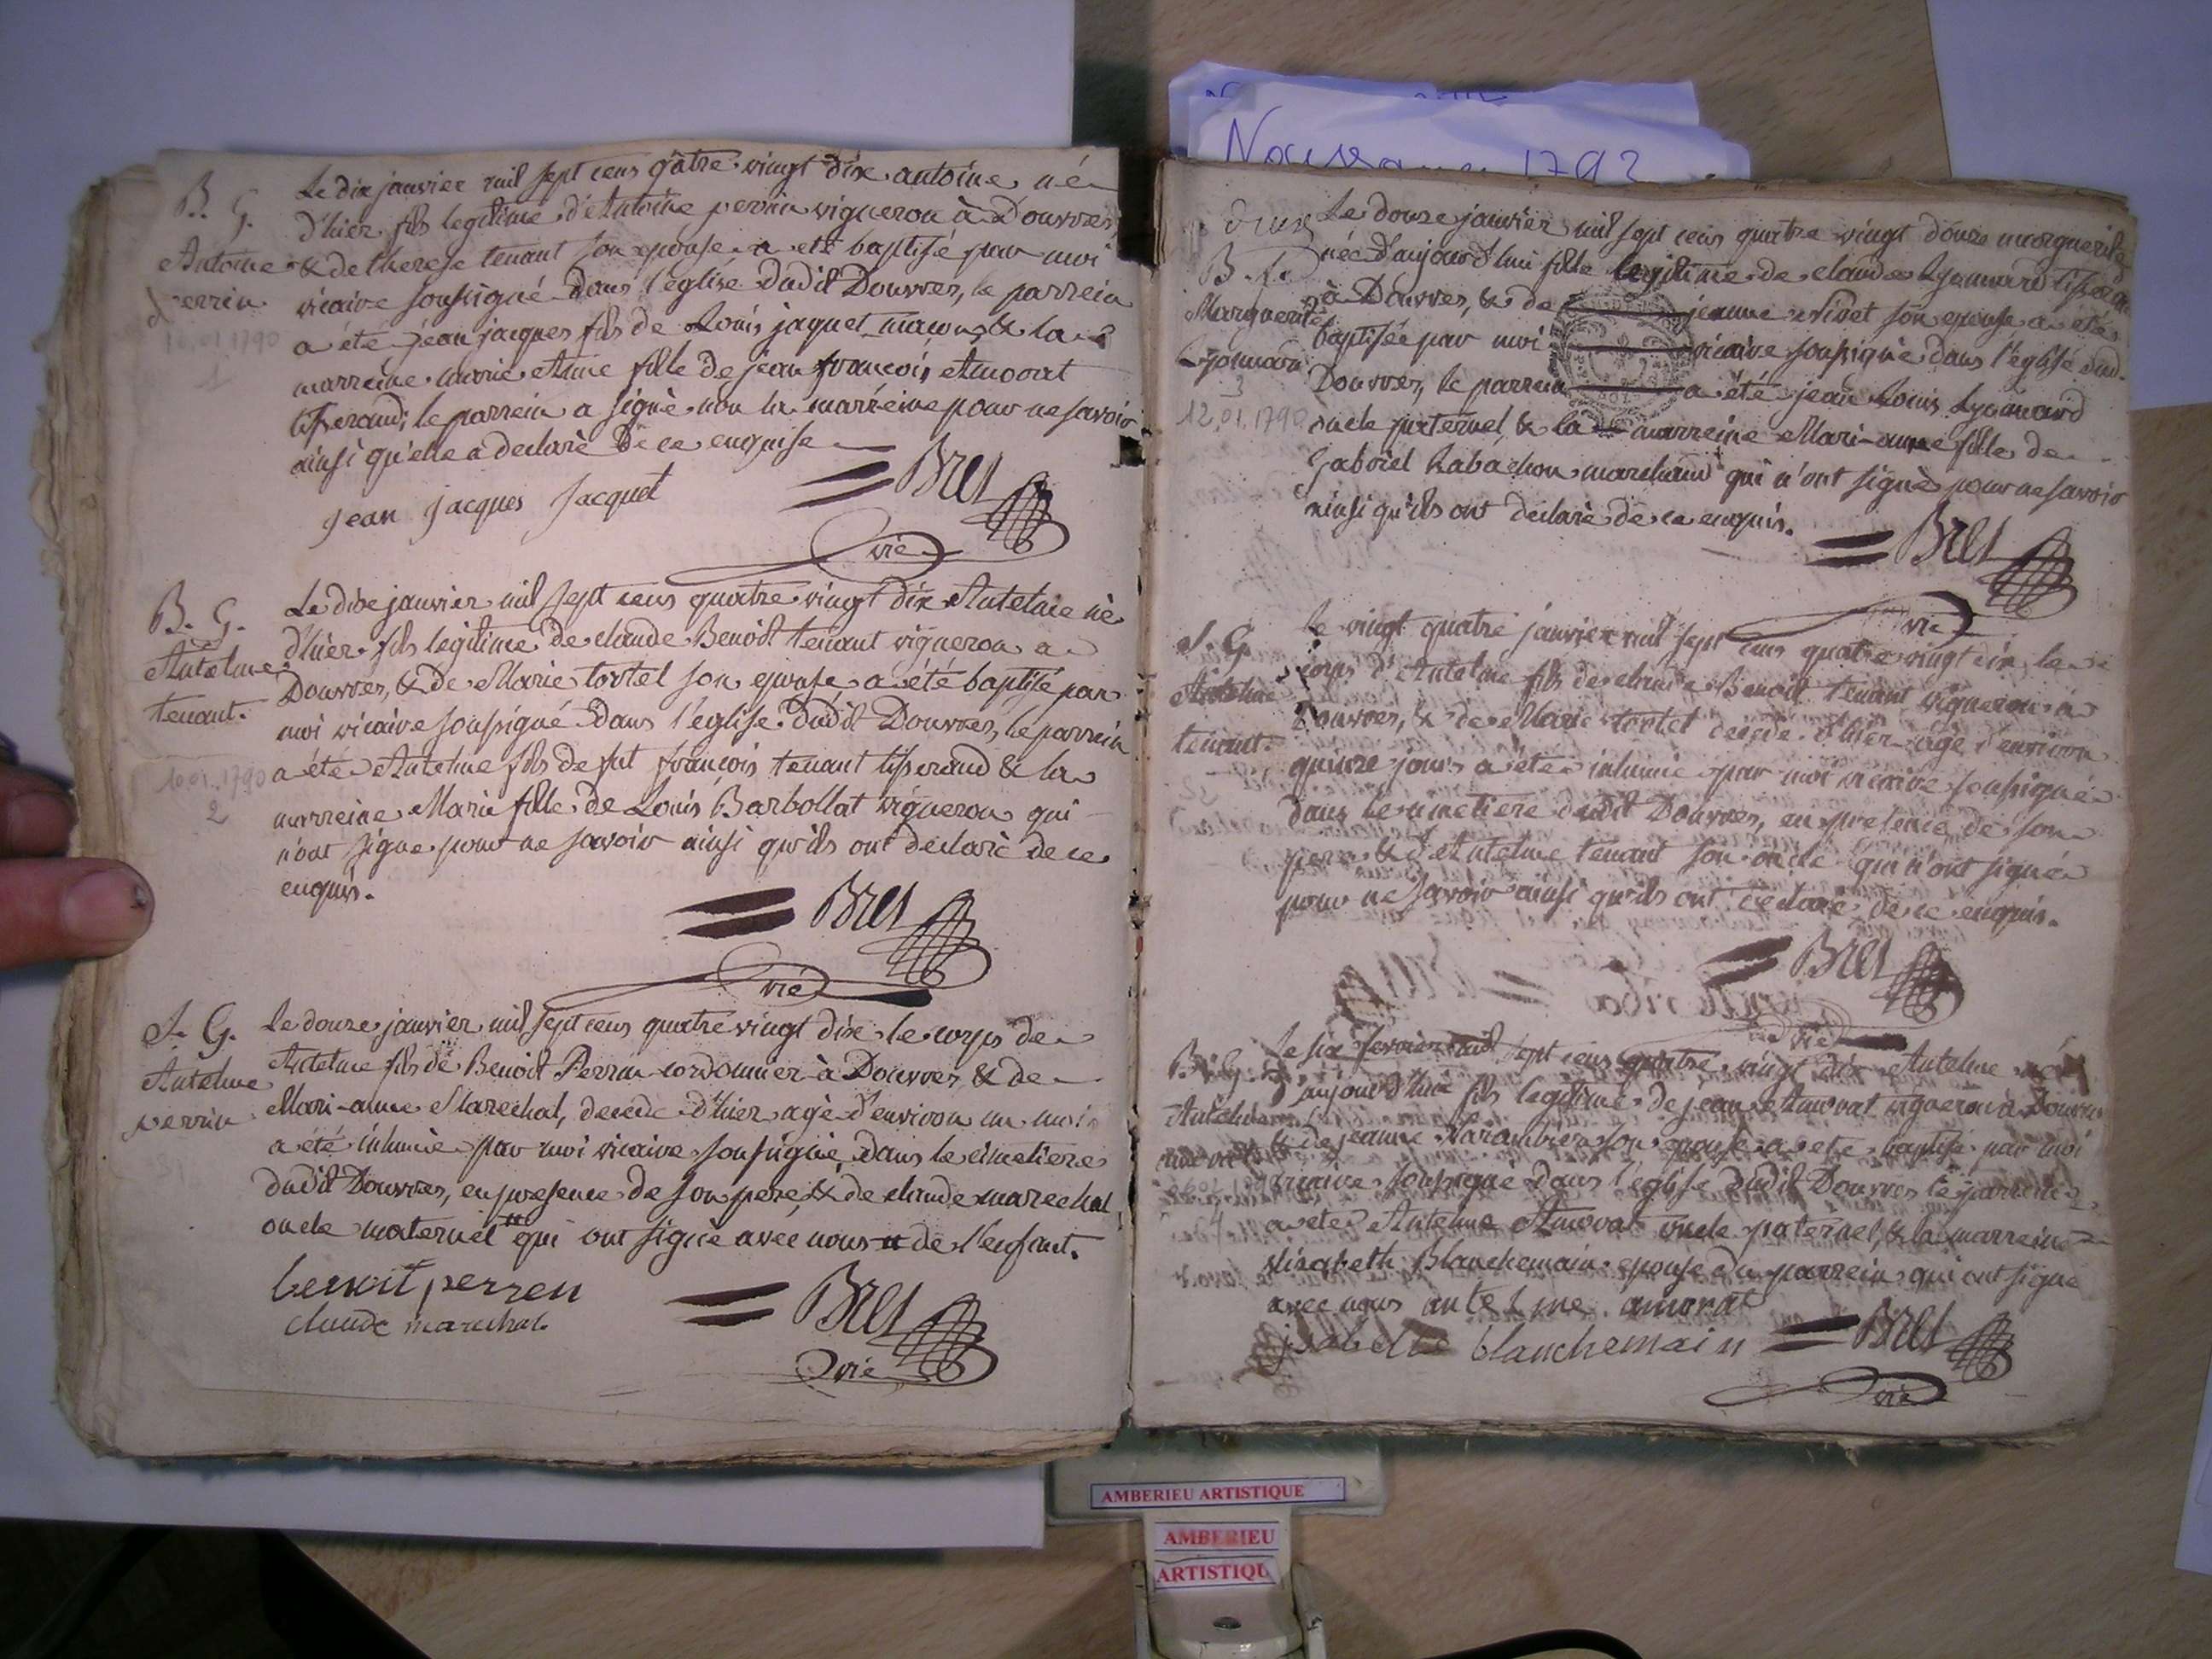 Noissance 1792
B. G.
Antoine
perrin
10.01.1790
1
Le dix janvier mil sept cens qûatre vingt dix antoine né
d'hier fils legitime d'Antoine perrin vigneron à Douvres
& de therese tenant son epouse a eté baptisé par moi
vicaire soussigné dans l'église dudit Douvres, le parrein
a été jean jacques fils de Loüis jaquet maçon, & la
marreine marie Anne fille de jean françois Amorat
tisserand; le parrein a signé non la marreine pour ne savoir
ainsi qu'elle a declaré de ce enquise
jean jacques jacquet
Bret
vic
B. G.
Antelme
tenant.
10.01.1790
2
Le dix janvier mil sept cens quatre vingt dix Antelme né
d'hier fils legitime de claude Benoit tenant vigneron a
Douvres, & de Marie tortel son epouse a été baptisé par
moi vicaire soussigné dans l'église dudit Douvres, le parrein
a été Antelme fils de fut françois tenant tisserand & la
marreine Marie fille de Loüis Barbollat vigneron qui
n'ont signé pour ne savoir ainsi qu'ils ont declaré de ce
enquis.
Bret
vic
S. G.
Antelme
perrin
Le douze janvier mil sept cens quatre vingt dix le corps de
Antelme fils de Benoit Perrin cordonnier à Douvres & de
Mari-anne Marechal, decedé d'hier agé d'environ un mois
a été inhumé par moi vicaire soussigné dans le cimetiere
dudit Douvres, en presence de son pere, & de claude marechal
oncle maternel qui ont signé avec nous de l'enfant.
benoit perren
claude marechal
Bret
vic
deux
B. f.
Marguerite
Lyonnard
3
12.01.1790
Le douze janvier mil sept cens quatre vingt douze marguerite
née d'aujourd'hui fille legitime de claude Lyonnard tisserand
à Douvres, & de jeanne Nivet son epouse a été
baptisée par moi vicaire soussigné dans l'église dud.
Douvres, le parrein a été jean Loüis Lyonnard
oncle paternel, & la marreine Mari-anne fille de
Gabriel Rabachon marchand qui n'ont signé pour ne savoir
ainsi qu'ils ont declaré de ce enquis.
Bret
vic
S. G.
Antelme
tenant.
le vingt quatre janvier mil sept cens quatre vingt dix le
corps d'Antelme fils de claude Benoit tenant vigneron à
Douvres, & de Marie tortel decédé d'hier agé d'environ
quinze jours a été inhumé par moi vicaire soussigné
dans le cimetiere dudit Douvres, en presence de son
pere & d'Antelme tenant son oncle qui n'ont signé
pour ne savoir ainsi qu'ils ont declaré de ce enquis.
Bret
vic
B. G.
Antelme
4
Le six fevrier mil sept cens quatre vingt dix Antelme né
d'aujourd'hui fils legitime de jean Amorat vigneron à Douvres
& de jeanne Narambier son epouse a été baptisé par moi
vicaire soussigné dans l'église dudit Douvres le parrein
a eté Antelme Amorat oncle paternel, & la marreine
Elizabeth Blanchemain epouse du parrein qui ont signé
avec nous antelme amorat
jsabelle blanchemain
Bret
vic
AMBERIEU ARTISTIQUE
AMBERIEU
ARTISTIQU